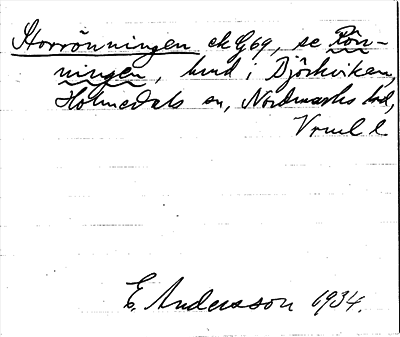 Storrönningen ek G69, se Rön-
ningen, hmd i Djörkviken,
Holmedals sn, Nordmarks hd,
Vrml l
E. Andersson 1934.